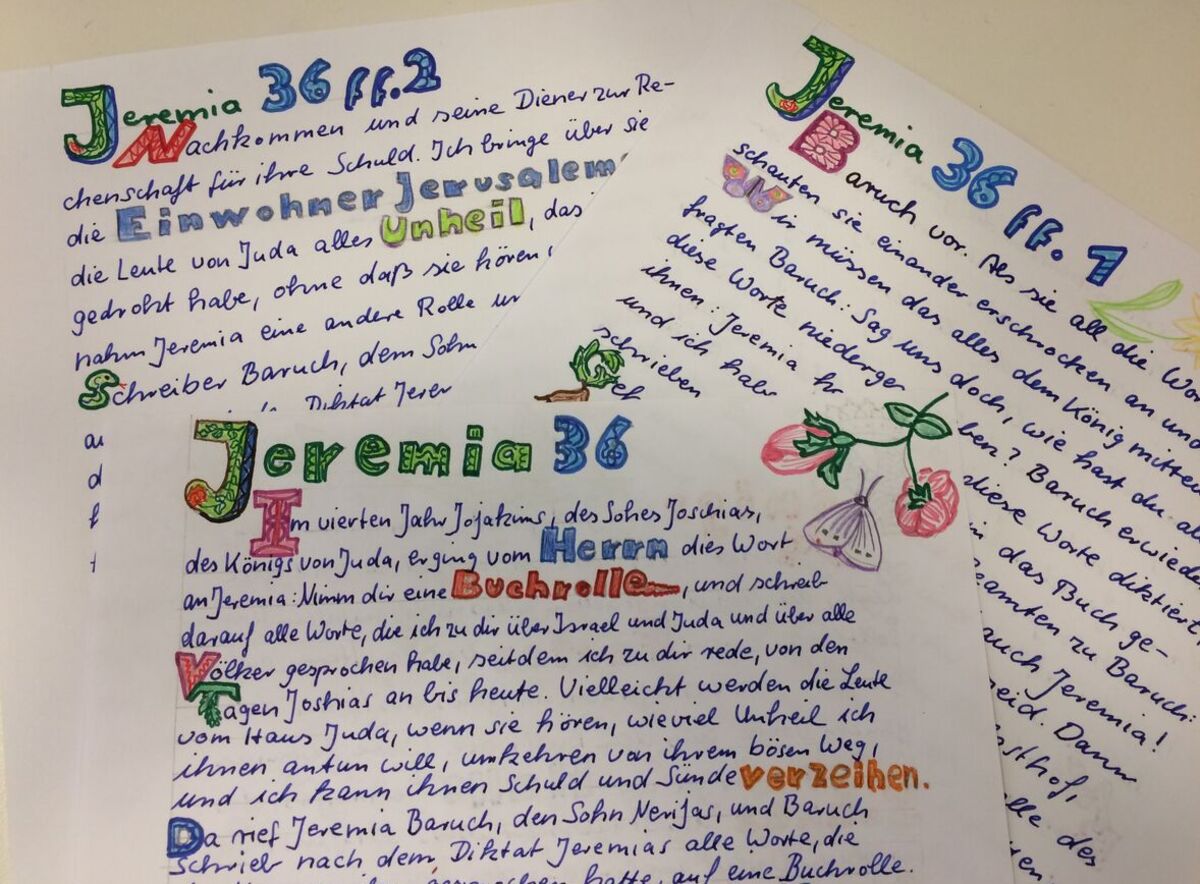 Jeremia 36 ff. 2
Nachkommen und seine Diener zur Re-
chenschaft für ihre Schuld. Ich bringe über sie
die Einwohner Jerusalem
die Leute von Juda alles Unheil, das
gedroht habe, ohne daß sie hören
nahm Jeremia eine andere Rolle
Schreiber Baruch, dem Sohn
Diktat Jerer
Jeremia 36 ff. 1
Baruch vor. Als sie all die Wor
schauten sie einander erschrocken an und
Wir müssen das alles dem König mitten
fragten Baruch: Sag uns doch, wie hast du all
diese Worte niederge ben? Baruch erwieder
ihnen: Jeremia diese Worte diktiert
und ich habe in das Buch ge-
schrieben eamten zu Baruch:
auch Jeremia!
eid. Dann
sthof,
lle des
sen
Jeremia 36
Im vierten Jahr Jojakims, des Sohes Joschias,
des Königs von Juda, erging vom Herrn dies Wort
an Jeremia: Nimm dir eine Buchrolle, und schreib
darauf alle Worte, die ich zu dir über Israel und Juda und über alle
Völker gesprochen habe, seitdem ich zu dir rede, von den
Tagen Joshias an bis heute. Vielleicht werden die Leute
vom Haus Juda, wenn sie hören, wieviel Unheil ich
ihnen antun will, umkehren von ihrem bösen Weg,
und ich kann ihnen Schuld und Sünde verzeihen.
Da rief Jeremia Baruch, den Sohn Nerijas, und Baruch
Schrieb nach dem Diktat Jeremias alle Worte, die
gesprochen hatte, auf eine Buchrolle.